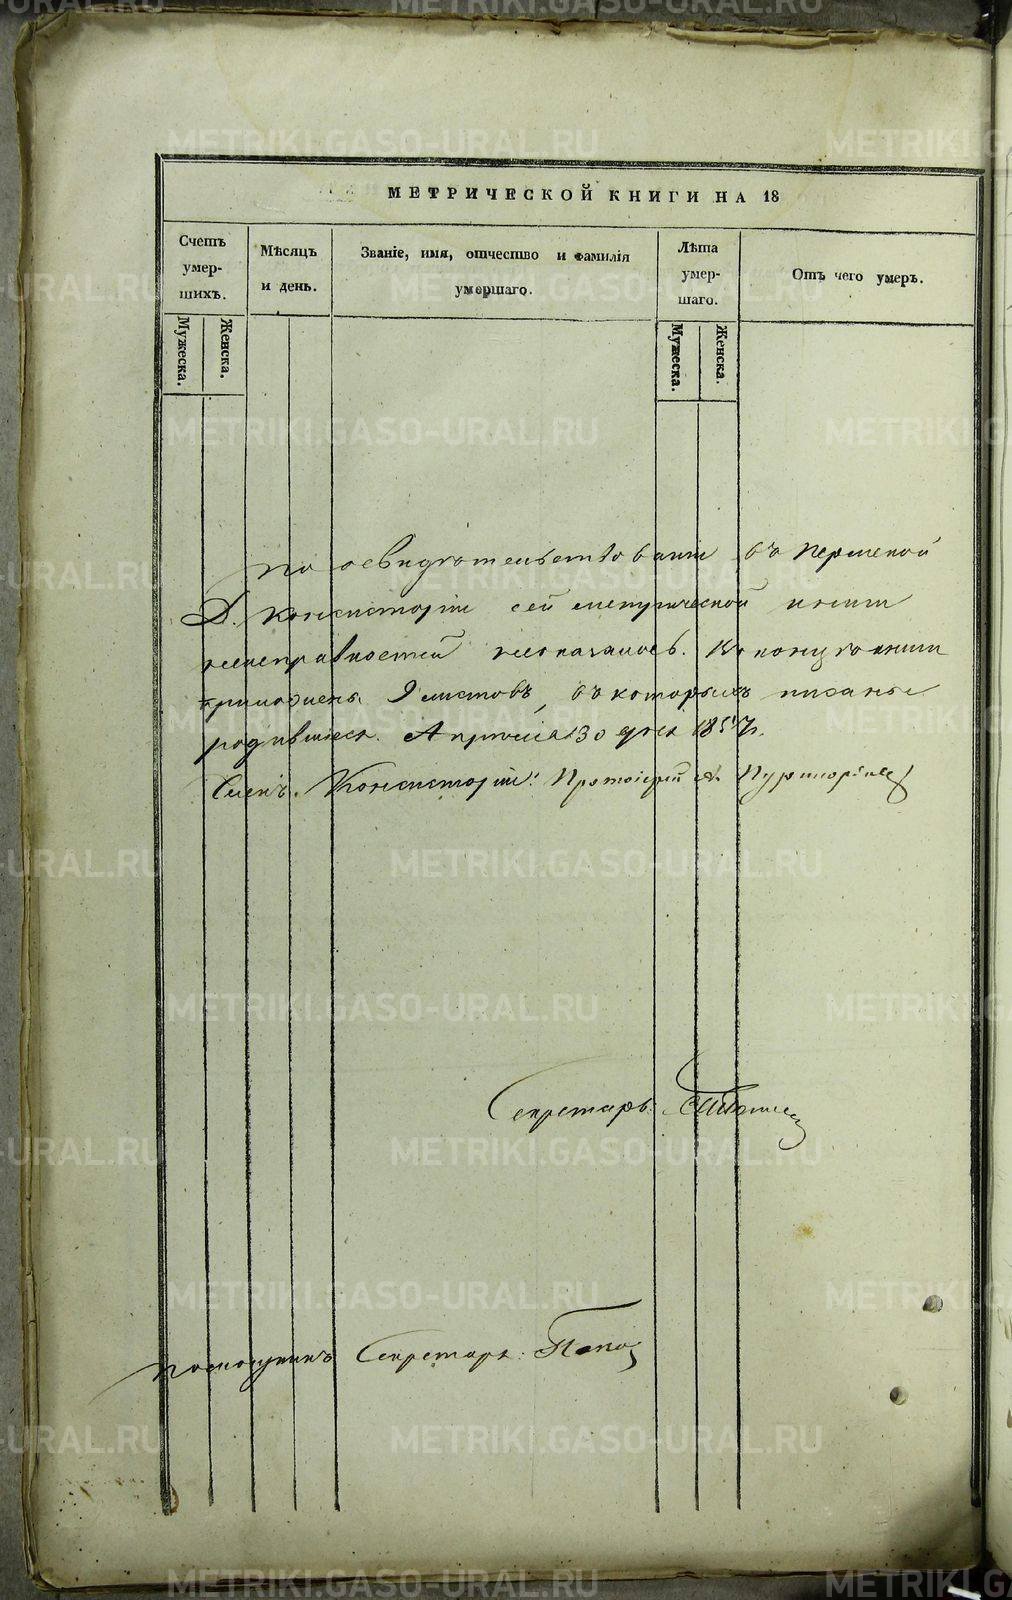 МЕТРИЧЕСКОЙ КНИГИ НА 18
Счетъ умершихъ.
Мужеска.
Женска.
Мѣсяцъ и день.
Званіе, имя, отчество и фамилія умершаго.
Лѣта умершаго.
Мужеска.
Женска.
Отъ чего умеръ.
По освидѣтельствованіи въ Пермской
Д. Консисторіи сей метрической книги
неисправностей неоказалось. Къ концу книги
приложены 9 листовъ, въ которыхъ писаны
родившіеся. Апрѣля 30 дня 1857 г.
Членъ Консисторіи: Протоіерей А.
Секретарь:
Помощникъ Секретаря: Попов
METRIKI.GASO-URAL.RU